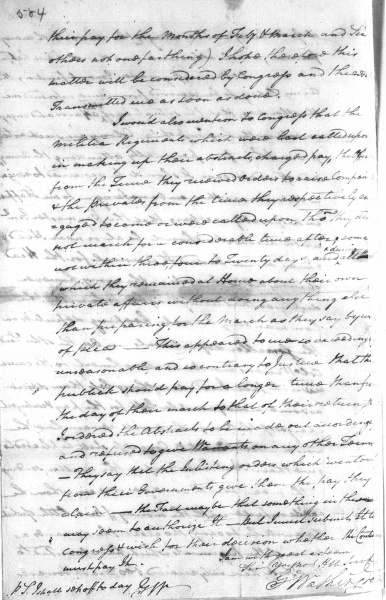 504
their pay for the Months of Feby & March and the
others not one farthing) I hope therefore this
matter will be considered by Congress and the
Transmitted me as soon as done.
I would also mention to Congress that the
Militia Regiments which were last called upon
in making up their abstracts, charged pay, the
from the Time they received orders to raise Companies
& the Privates from the time they respectively
engaged to come or were called upon, tho' they did
not march for a considerable time after, some
not within three, four to Twenty days and all
which they remained at Home about their own
private affairs without doing any thing else
than preparing for the march as they say by way
of Plea — This appeared to me so exceedingly
unreasonable, and so contrary to Justice that the
publick should pay for a longer time than from
the day of their march to that of their return, that
I ordered the Abstracts to be made out accordingly
and refused to give Warrants on any other Terms
— They say that the inlisting orders which went out
from their Governments give them the pay they
claim — the Fact may be that something in these
may seem to authorize It — But I must submit It to
Congress & wish for their decision whether the Continent
must pay It.
I am with great esteem
Sir Your most
G Washington
P.S. I shall set off to day